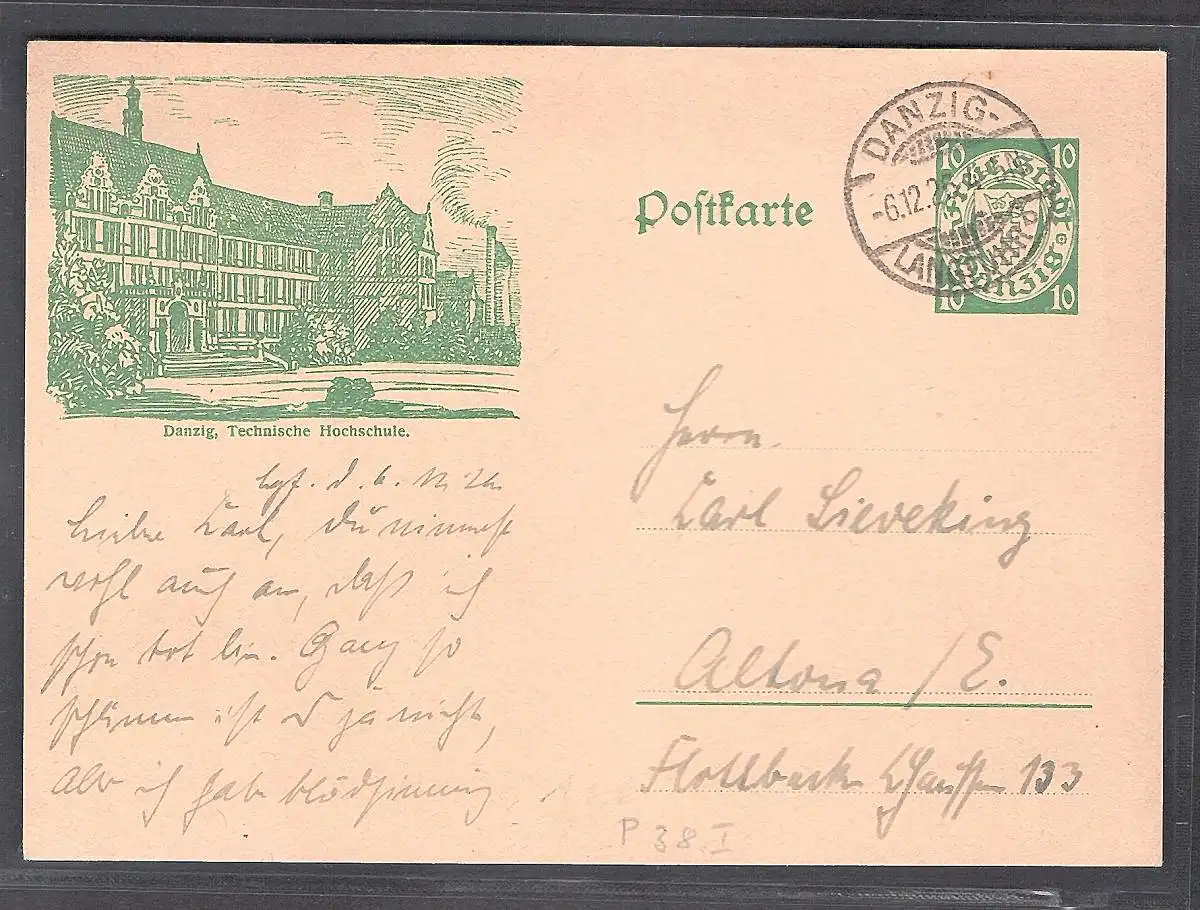 Postkarte
DANZIG-
-6.12.2
LANGFUHR
10 10
Freie Stadt
Danzig
10 10
Danzig, Technische Hochschule.
Lgf. d. 6.
Lieber Carl, Du nimmst
wohl auch an, daß ich
schon tot bin. Ganz so
schlimm ist's ja nicht,
Aber ich habe blödsinnig
Herrn
Carl Sieveking
Altona / E.
Flottbeker Chaussee 133
P 38 I